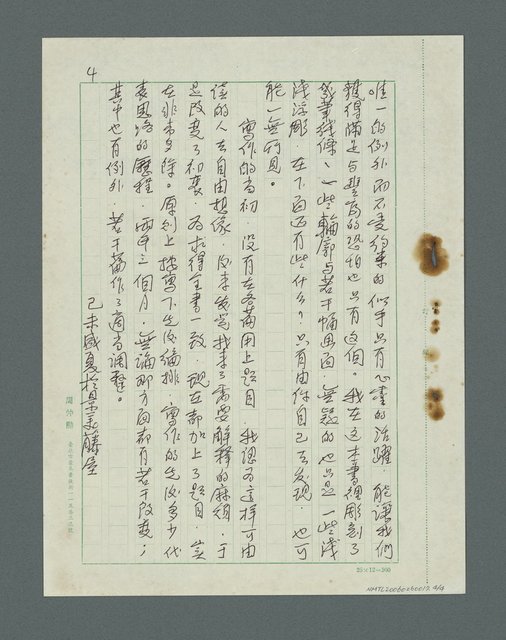 唯一的例外而不受約束的似乎只有心靈的活躍．能讓我們
獲得滿足与豐富的恐怕也只有這個。我在這本書裡彫刻了
幾筆线條、一些輪廓与若干幅畫面．無疑的也只是一些淺
淺浮彫．在下面还有些什么？．只有由你自己去发現．也可
能一無所見。
寫作的当初．没有在各篇用上題目．我認为這样可由
读的人去自由想像．後来发覺找来了需要解釋的麻煩．于
是改变了初衷．为求得全書一致．現在都加上了題目．实
在非常多餘。原則上按寫下先後编排．寫作的先後多少代
表思路的歷程．兩三個月．無論那方面都有若干改变；
其中也有例外．若干篇作了適当調整。
己未盛夏於墨藤屋
4
周仲勳
25×12＝300
NMTL20060260017 4/4